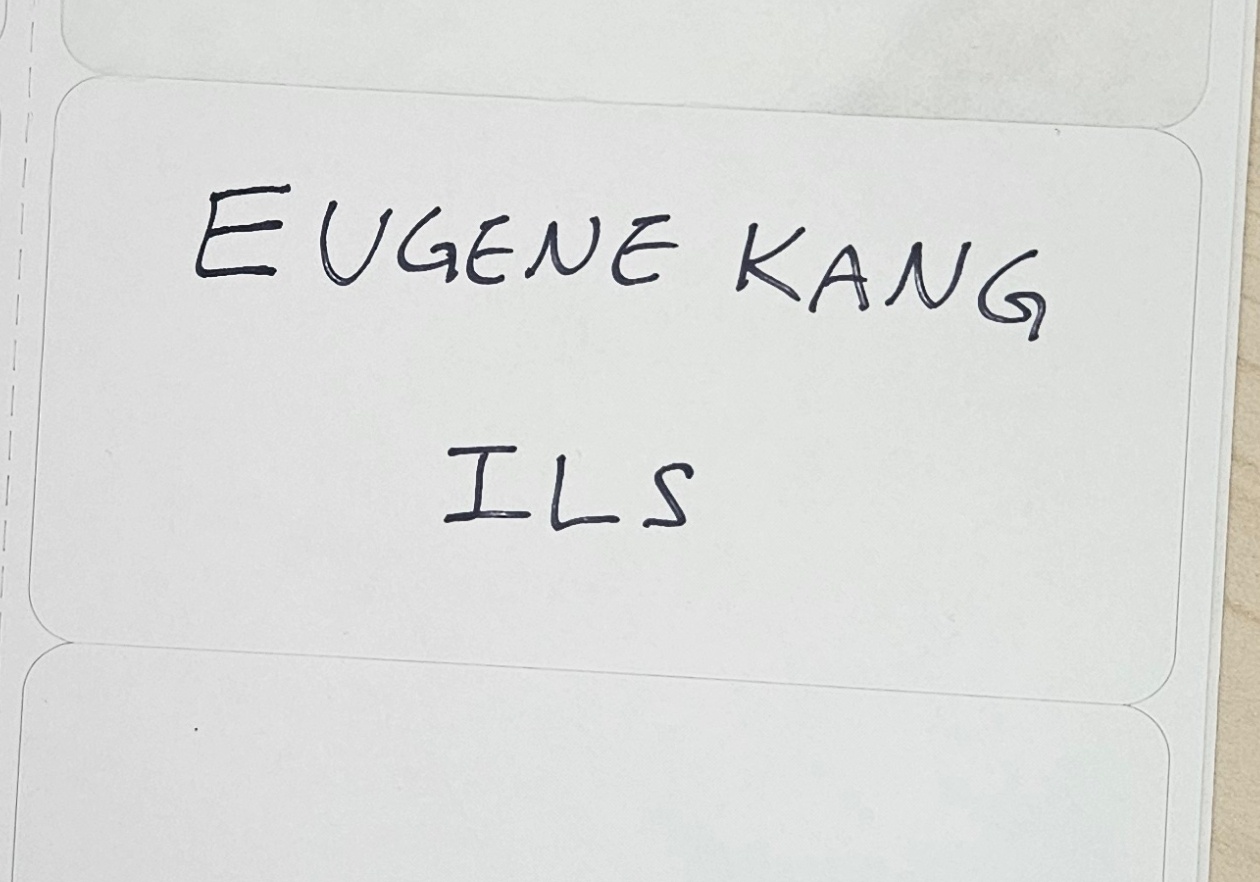 EUGENE KANG
ILS